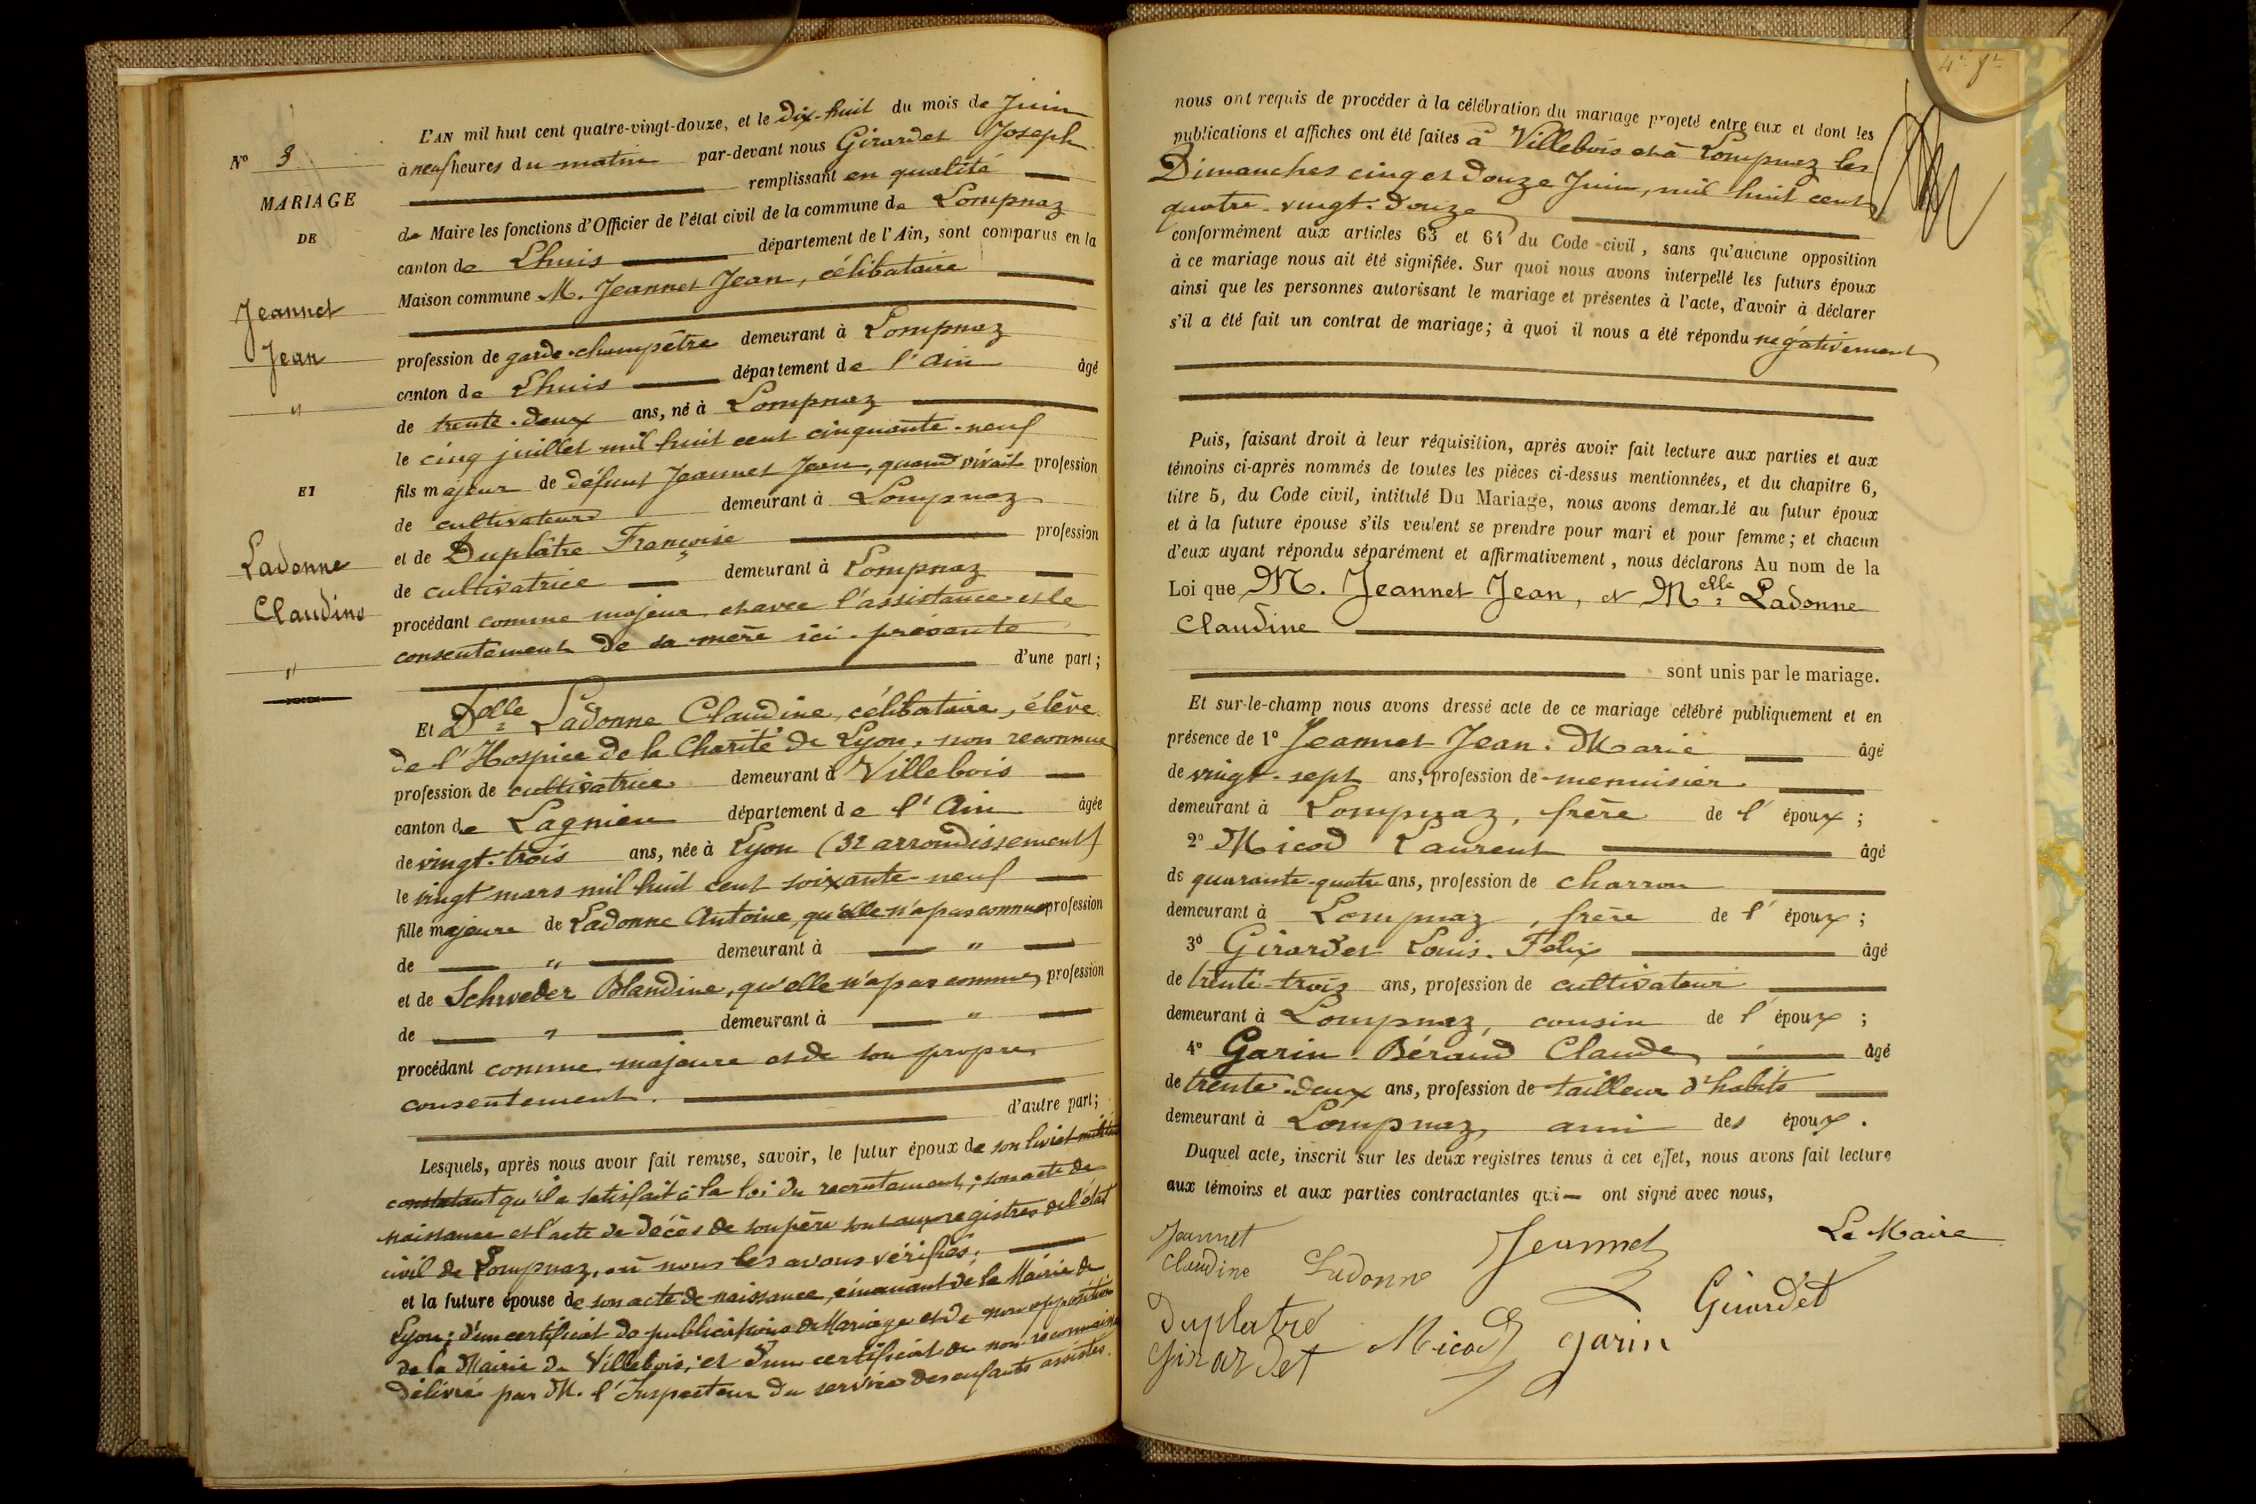 L'AN mil huit cent quatre-vingt-douze, et le Dix-huit du mois de Juin
N° 3
à neuf heures du matin par-devant nous Girardet Joseph
remplissant en qualité
MARIAGE
de Maire les fonctions d'Officier de l'état civil de la commune de Lompnaz
DE
canton de Lhuis département de l'Ain, sont comparus en la
Maison commune M. Jeannet Jean, célibataire
Jeannet
Jean
profession de garde-champêtre demeurant à Lompnaz
canton de Lhuis département de l'Ain âgé
"
de trente-deux ans, né à Lompnaz
le cinq juillet mil huit cent cinquante-neuf
ET
fils majeur de défunt Jeannet Jean, quand vivait profession
de cultivateur demeurant à Lompnaz
et de Duplâtre Françoise profession
Ladonne
Claudine
de cultivatrice demeurant à Lompnaz
procédant comme majeur et avec l'assistance et le
consentement de sa mère ici-présente
"
d'une part;
Et Delle Ladonne Claudine, célibataire, élève
de l'Hospice de la Charité de Lyon, non reconnue
profession de cultivatrice demeurant à Villebois
canton de Lagnieu département de l'Ain âgée
de vingt-trois ans, née à Lyon (3e arrondissement)
le vingt mars mil huit cent soixante-neuf
fille majeure de Ladonne Antoine, qu'elle n'a pas connu profession
de " demeurant à "
et de Schweder Blandine, qu'elle n'a pas connue, profession
de " demeurant à "
procédant comme majeure et de son propre
consentement.
d'autre part;
Lesquels, après nous avoir fait remise, savoir, le futur époux de son livret militaire
constatant qu'il a satisfait à la loi du recrutement; son acte de
naissance et l'acte de décès de son père sont aux registres de l'état
civil de Lompnaz, où nous les avons vérifiés.
et la future épouse de son acte de naissance, émanant de la Mairie de
Lyon; d'un certificat de publications de Mariage et de non opposition
de la Mairie de Villebois; et d'un certificat de non reconnaissance
délivré par M. l'Inspecteur du service des enfants assistés.
nous ont requis de procéder à la célébration du mariage projeté entre eux et dont les
publications et affiches ont été faites à Villebois et à Lompnaz les
Dimanches cinq et douze Juin, mil huit cent
quatre-vingt-douze
conformément aux articles 63 et 64 du Code civil, sans qu'aucune opposition
à ce mariage nous ait été signifiée. Sur quoi nous avons interpellé les futurs époux
ainsi que les personnes autorisant le mariage et présentes à l'acte, d'avoir à déclarer
s'il a été fait un contrat de mariage; à quoi il nous a été répondu négativement
Puis, faisant droit à leur réquisition, après avoir fait lecture aux parties et aux
témoins ci-après nommés de toutes les pièces ci-dessus mentionnées, et du chapitre 6,
titre 5, du Code civil, intitulé Du Mariage, nous avons demandé au futur époux
et à la future épouse s'ils veulent se prendre pour mari et pour femme; et chacun
d'eux ayant répondu séparément et affirmativement, nous déclarons Au nom de la
Loi que M. Jeannet Jean, et Melle Ladonne
Claudine
sont unis par le mariage.
Et sur-le-champ nous avons dressé acte de ce mariage célébré publiquement et en
présence de 1° Jeannet Jean-Marie âgé
de vingt-sept ans, profession de menuisier
demeurant à Lompnaz, frère de l'époux;
2° Micod Laurent âgé
de quarante-quatre ans, profession de charron
demeurant à Lompnaz, frère de l'époux;
3° Girardet Louis-Félix âgé
de trente-trois ans, profession de cultivateur
demeurant à Lompnaz, cousin de l'époux;
4° Garin-Béraud Claude âgé
de trente-deux ans, profession de tailleur d'habits
demeurant à Lompnaz, ami des époux.
Duquel acte, inscrit sur les deux registres tenus à cet effet, nous avons fait lecture
aux témoins et aux parties contractantes qui ont signé avec nous,
Jeannet Jeannet Le Maire
Claudine Ladonne Girardet
Duplatre Micod garin
Girardet